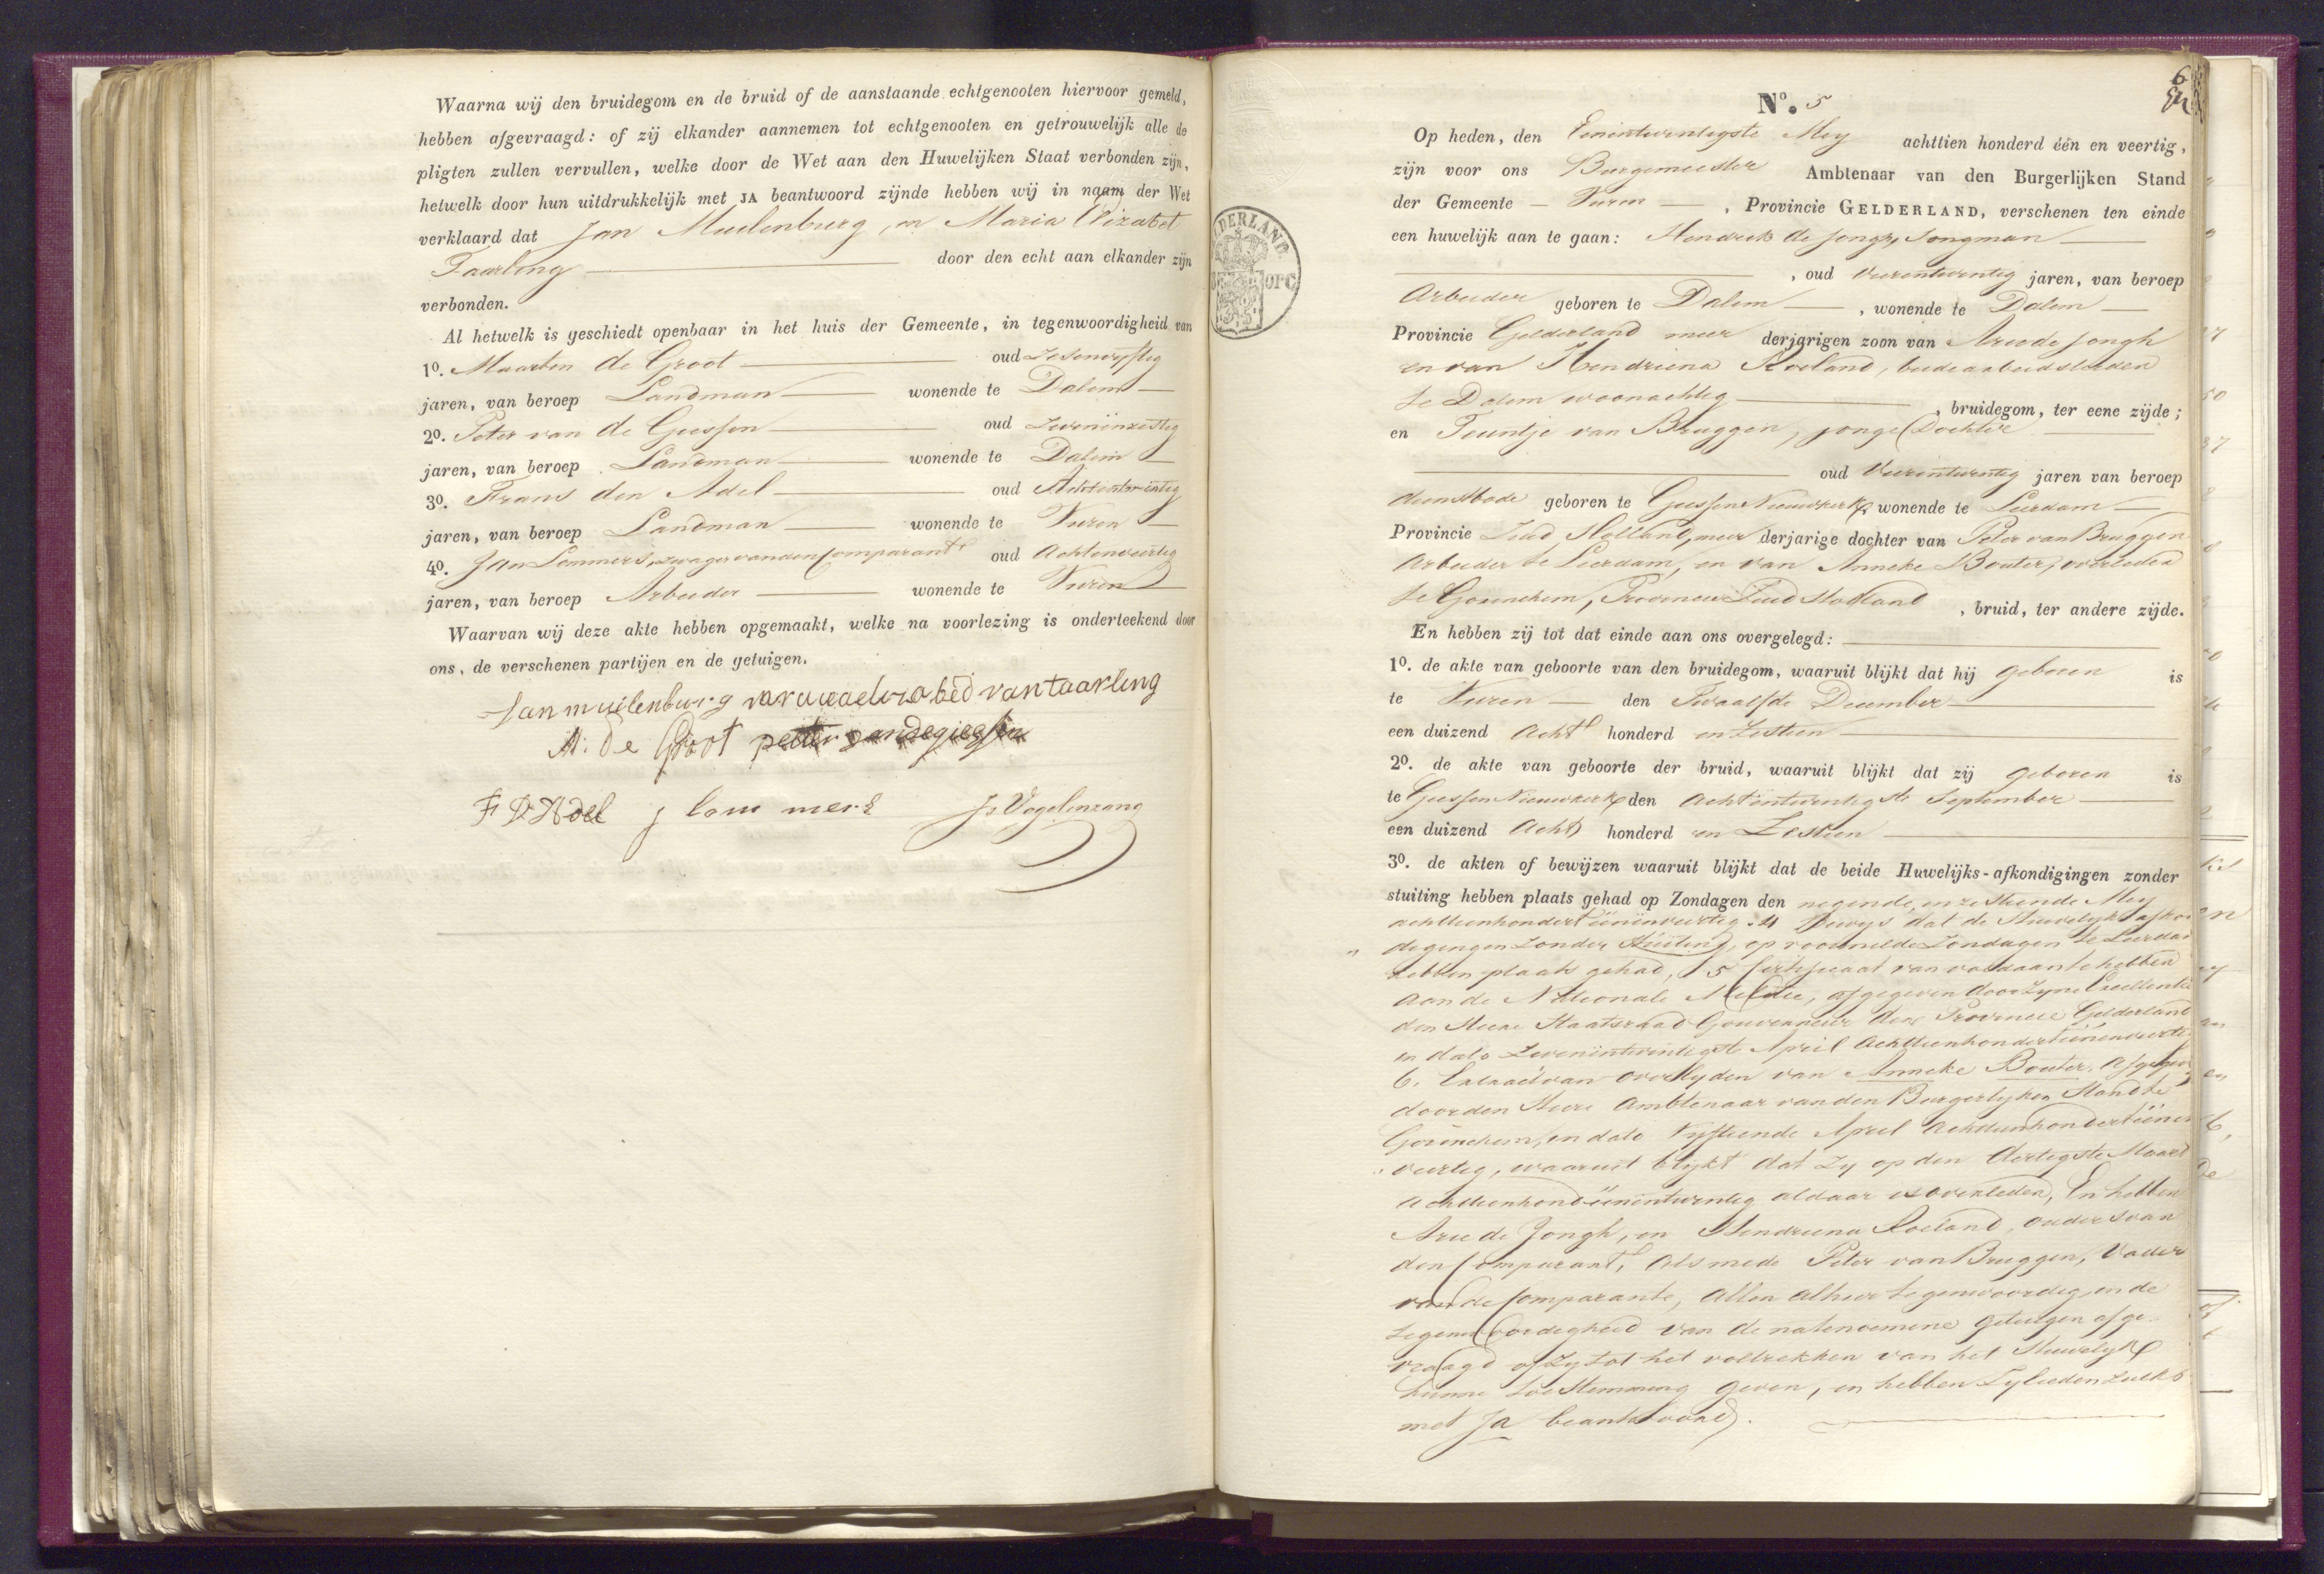 Waarna wij den bruidegom en de bruid of de aanstaande echtgenooten hiervoor gemeld,
hebben afgevraagd: of zij elkander aannemen tot echtgenooten en getrouwelijk alle de
pligten zullen vervullen, welke door de Wet aan den Huwelijken Staat verbonden zijn,
hetwelk door hun uitdrukkelijk met JA beantwoord zijnde hebben wij in naam der Wet
verklaard dat Jan Muilenburg, en Maria Elizabet
Taarling door den echt aan elkander zijn
verbonden.
Al hetwelk is geschiedt openbaar in het huis der Gemeente, in tegenwoordigheid van
1º. Maarten de Groot oud Zesenvyftig
jaren, van beroep Landman wonende te Dalem
2º. Peter van de Giessen oud Zevenënzestig
jaren, van beroep Landman wonende te Dalem
3º. Frans den Adel oud Achtentwintig
jaren, van beroep Landman wonende te Vuren
4º. Jan Lommers, zwager van den Comparant oud Achtenveertig
jaren, van beroep Arbeider wonende te Vuren
Waarvan wij deze akte hebben opgemaakt, welke na voorlezing is onderteekend door
ons, de verschenen partijen en de getuigen.
Jan muilenburg van taarling
M: de Groot peeter vandegiessen
F D Adel j lom mers Js Vogelenzang
6
Nº. 5
Op heden, den Eenëntwentigste Mey achttien honderd één en veertig,
zijn voor ons Burgemeester Ambtenaar van den Burgerlijken Stand
der Gemeente Vuren, Provincie GELDERLAND, verschenen ten einde
een huwelijk aan te gaan: Hendrik de Jongh, Jongman
, oud Vierentwentig jaren, van beroep
Arbeider geboren te Dalem, wonende te Dalem
Provincie Gelderland meer derjarigen zoon van Arie de Jongh
en van Hendriena Roeland, beide arbeidslieden
te Dalem woonachtig, bruidegom, ter eene zijde;
en Teuntje van Bruggen, jonge Dochter
oud Vierentwentig jaren van beroep
dienstbode geboren te Giessen Nieuwkerk, wonende te Leerdam
Provincie Zuid Holland, meer derjarige dochter van Peter van Bruggen
Arbeider te Leerdam, en van Anneke Bouter, overleden
te Gorinchem, Provincie Zuid Holland, bruid, ter andere zijde.
En hebben zij tot dat einde aan ons overgelegd:
1º. de akte van geboorte van den bruidegom, waaruit blijkt dat hij geboren is
te Vuren den Twaalfde December
een duizend Acht honderd en Zestien
2º. de akte van geboorte der bruid, waaruit blijkt dat zij geboren is
te Giessen Nieuwkerk den Achtëntwentigste September
een duizend Acht honderd en Zestien
3º. de akten of bewijzen waaruit blijkt dat de beide Huwelijks-afkondigingen zonder
stuiting hebben plaats gehad op Zondagen den negende, en zestiende Mey
achttienhondert eenënveertig. 4 Bewys dat de Huwelyks afkon
degingen zonder Stuiting, op voormelde Zondagen te Leerdam
hebben plaats gehad, 5 Certificaat van voldaan te hebben
aan de Nationale Melitie, afgegeven door Zyne Excellentie
den Heere Staatsraad Gouverneur der Provincie Gelderland
in dato Zevenëntwintigste April Achttienhondert eenenveertig
6. Extract van overlyden van Anneke Bouter. Afgegeven
door den Heere Ambtenaar van den Burgerlyken Stand te
Gorinchem, in dato Vyftiende April Achttienhondert eenen
veertig, waaruit blykt dat Zy op den dertigste Maart
Achttienhond eenëntwentig aldaar is overleden, En hebben
Arie de Jongh, en Hendriena Roeland, ouders van
den Comparant, Alsmede Peter van Bruggen, Vader
van de Comparante, Allen Alhier tegenwoordig, in de
tegenwoordigheid van de natenoemene getuigen afge-
vraagd of Zy tot het voltrekken van het Huwelyk
hunne toestemming geven, en hebben Zylieden zulks
met Ja beantwoord.